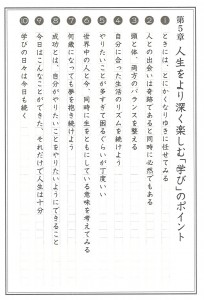 第5章 人生をより深く楽しむ「学び」のポイント
① ときには、とにかくなりゆきに任せてみる
② 人との出会いは奇跡であると同時に必然でもある
③ 頭と体、両方のバランスを整える
④ 自分に合った生活のリズムを続けよう
⑤ やりたいことが多すぎて困るぐらいが丁度いい
⑥ 世界中の人と今、同時に生をともにしている意味を考えてみる
⑦ 何歳になっても夢を抱き続けよう
⑧ 成功とは、自分がやりたいことをやりたいようにできること
⑨ 今日はこんなことができた、それだけで人生は十分
⑩ 学びの日々は今日も続く